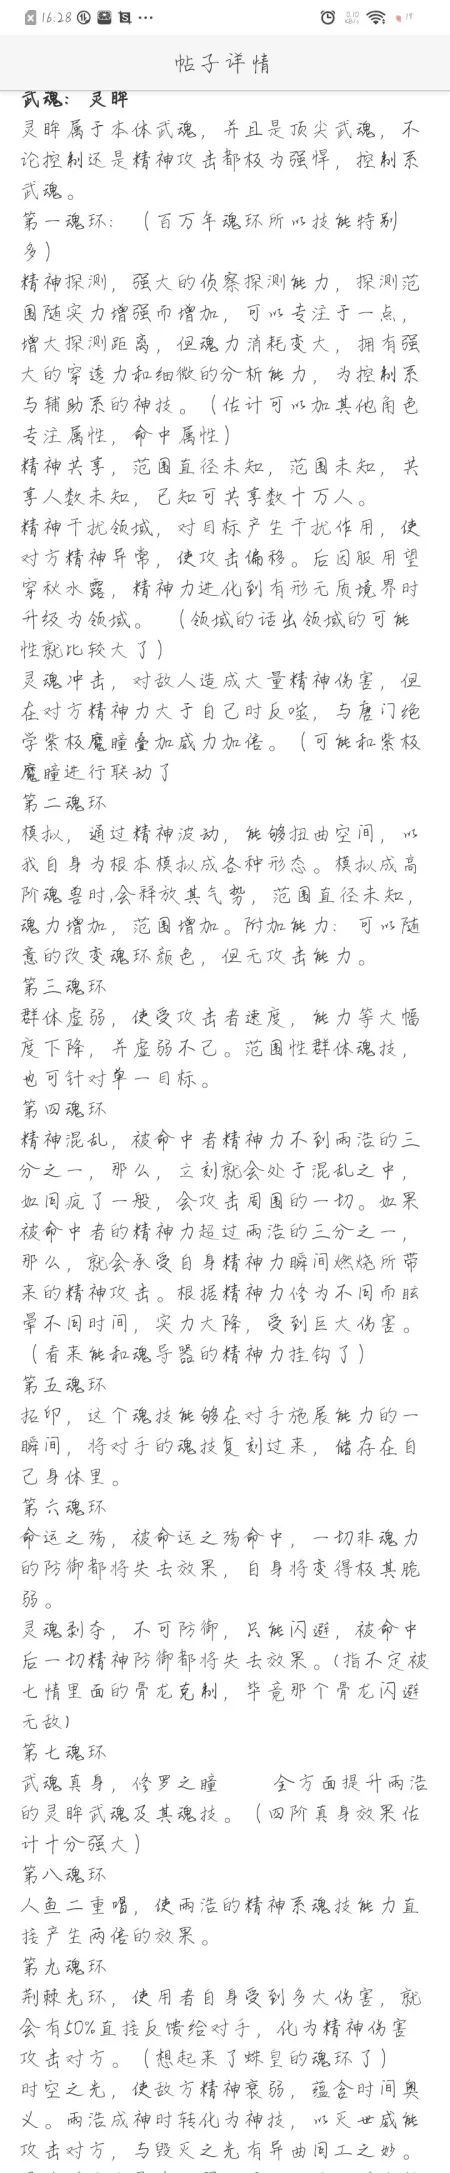 16:28
0.10 KB/s
19
帖子详情
武魂：灵眸
灵眸属于本体武魂，并且是顶尖武魂，不
论控制还是精神攻击都极为强悍，控制系
武魂。
第一魂环：（百万年魂环所以技能特别
多）
精神探测，强大的侦察探测能力，探测范
围随实力增强而增加，可以专注于一点，
增大探测距离，但魂力消耗变大，拥有强
大的穿透力和细微的分析能力，为控制系
与辅助系的神技。（估计可以加其他角色
专注属性，命中属性）
精神共享，范围直径未知，范围未知，共
享人数未知，已知可共享数十万人。
精神干扰领域，对目标产生干扰作用，使
对方精神异常，使攻击偏移。后因服用望
穿秋水露，精神力进化到有形无质境界时
升级为领域。（领域的话出领域的可能
性就比较大了）
灵魂冲击，对敌人造成大量精神伤害，但
在对方精神力大于自己时反噬，与唐门绝
学紫极魔瞳叠加威力加倍。（可能和紫极
魔瞳进行联动了
第二魂环
模拟，通过精神波动，能够扭曲空间，以
我自身为根本模拟成各种形态。模拟成高
阶魂兽时,会释放其气势，范围直径未知，
魂力增加，范围增加。附加能力：可以随
意的改变魂环颜色，但无攻击能力。
第三魂环
群体虚弱，使受攻击者速度，能力等大幅
度下降，并虚弱不已。范围性群体魂技，
也可针对单一目标。
第四魂环
精神混乱，被命中者精神力不到雨浩的三
分之一，那么，立刻就会处于混乱之中，
如同疯了一般，会攻击周围的一切。如果
被命中者的精神力超过雨浩的三分之一，
那么，就会承受自身精神力瞬间燃烧所带
来的精神攻击。根据精神力修为不同而眩
晕不同时间，实力大降，受到巨大伤害。
（看来能和魂导器的精神力挂钩了）
第五魂环
拓印，这个魂技能够在对手施展能力的一
瞬间，将对手的魂技复刻过来，储存在自
己身体里。
第六魂环
命运之殇，被命运之殇命中，一切非魂力
的防御都将失去效果，自身将变得极其脆
弱。
灵魂剥夺，不可防御，只能闪避，被命中
后一切精神防御都将失去效果。（指不定被
七情里面的骨龙克制，毕竟那个骨龙闪避
无敌）
第七魂环
武魂真身，修罗之瞳 全方面提升雨浩
的灵眸武魂及其魂技。（四阶真身效果估
计十分强大）
第八魂环
人鱼二重唱，使雨浩的精神系魂技能力直
接产生两倍的效果。
第九魂环
荆棘光环，使用者自身受到多大伤害，就
会有50%直接反馈给对手，化为精神伤害
攻击对方。（想起来了蛛皇的魂环了）
时空之光，使敌方精神衰弱，蕴含时间奥
义。雨浩成神时转化为神技，以灭世威能
攻击对方，与毁灭之光有异曲同工之妙。